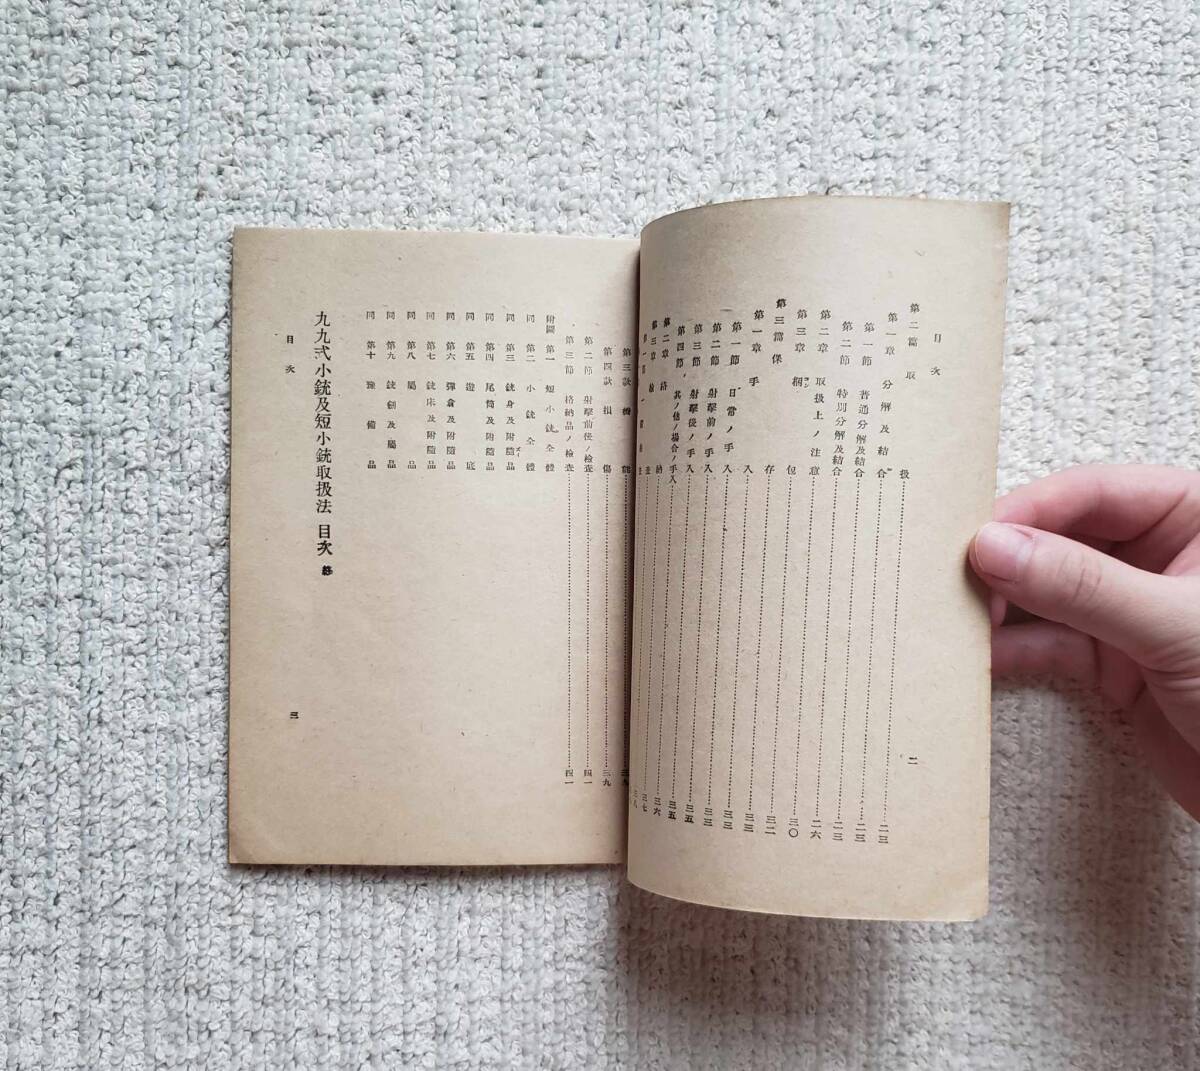 目次
二
第二篇 取扱
第一章 分解及結合 二三
第一節 普通分解及結合 二三
第二節 特別分解及結合 二三
第二章 取扱上ノ注意 二六
第三章 梱包 三〇
第三篇 保存 三二
第一章 手入 三三
第一節 日常ノ手入 三三
第二節 射擊前ノ手入 三三
第三節 射擊後ノ手入 三五
第四節 其ノ他ノ場合ノ手入 三五
第二章 格納 三六
第三章 檢查 三七
第三款 機能 三九
第四款 損傷 三九
第二節 射擊前後ノ檢查 四一
第三節 格納品ノ檢查 四一
附圖 第一 短小銃全體
同 第二 小銃全體
同 第三 銃身及附隨品
同 第四 尾筒及附隨品
同 第五 遊底
同 第六 彈倉及附隨品
同 第七 銃床及附隨品
同 第八 屬品
同 第九 銃劍及屬品
同 第十 豫備品
九九式小銃及短小銃取扱法 目次 終
目次
三